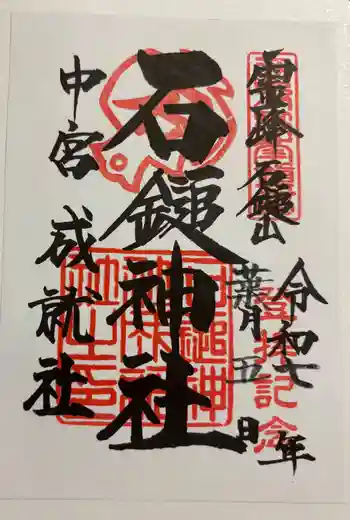 霊峰石鎚山
登拝記念
令和七年
葉月五日
石鎚神社
中宮 成就社